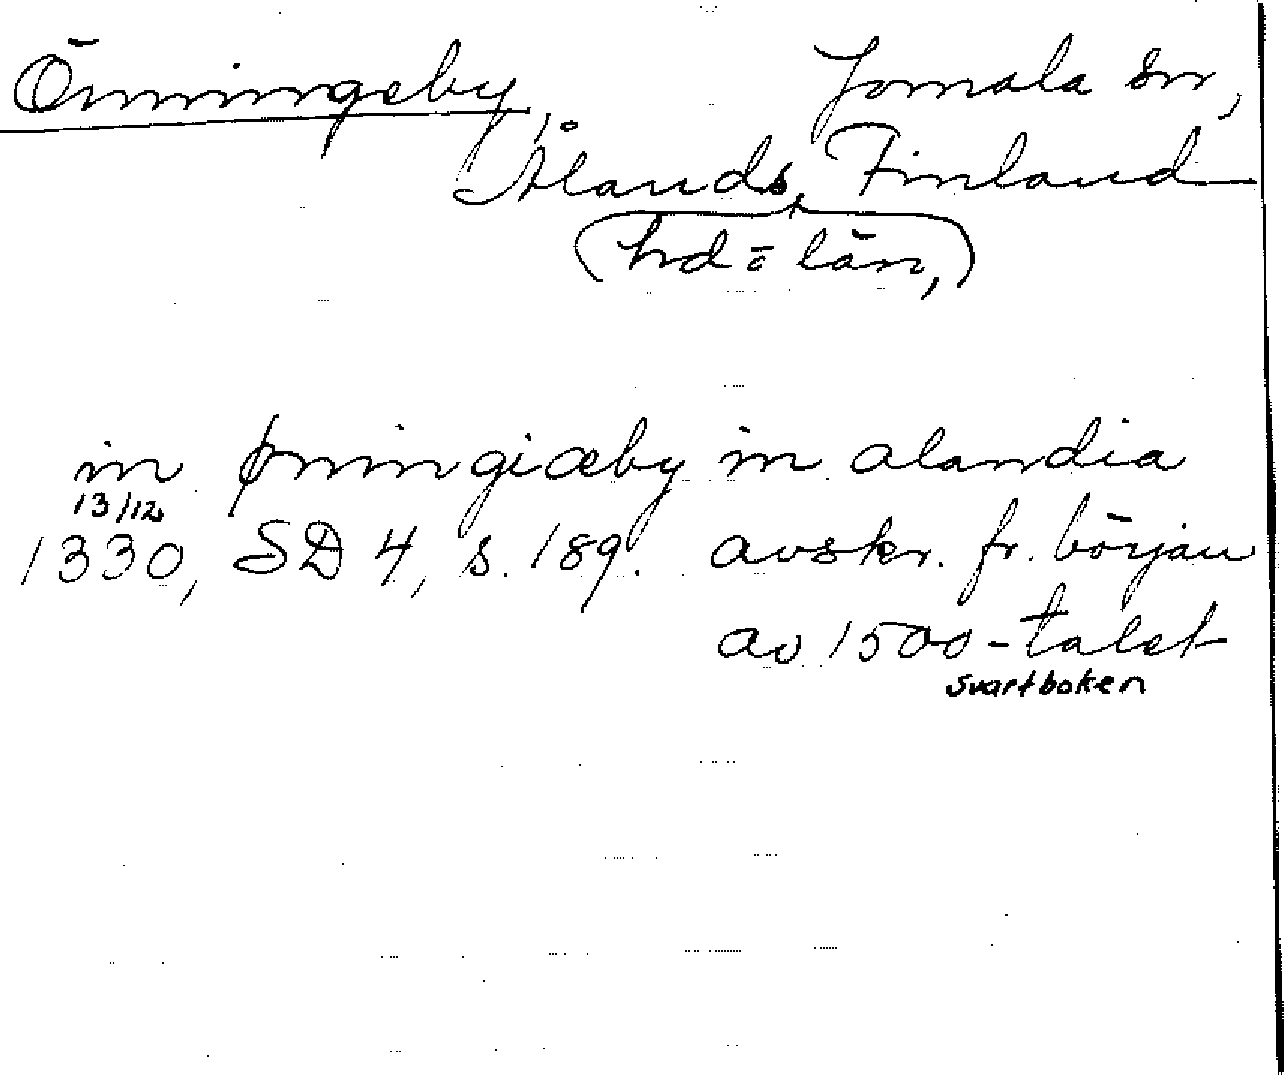 Önningeby, Jomala sn,
Ålands, Finland
(hd o län,)
in ønningiæby in alandia
13/12
1330, SD 4, s. 189. avskr. fr. början
av 1500-talet
svartboken